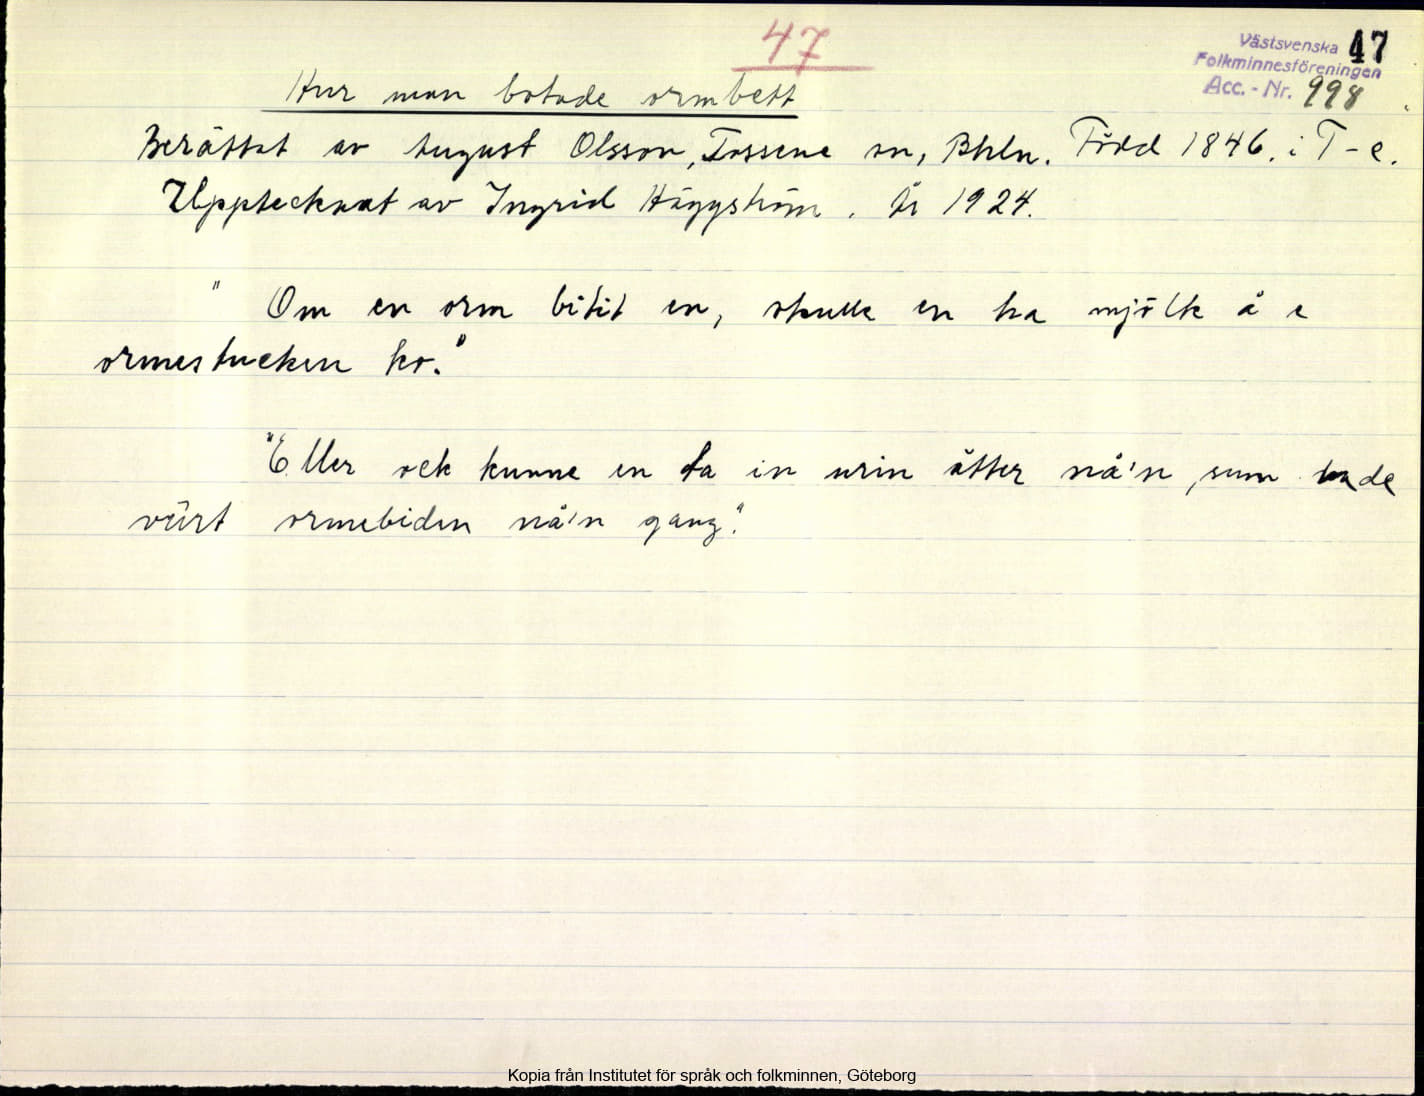 47
Västsvenska 47
Folkminnesföreningen
Acc.-Nr. 998
Hur man botade ormbett
Berättat av August Olsson, Tossene sn, Bhln. Född 1846. i T-e.
Upptecknat av Ingrid Häggström. År 1924.
" Om en orm bitit en, skulle en ha mjölk å e
ormestucken ko."
"Eller ock kunne en ta in urin åtter nå'n, sum hade
vûrt ormebiden nå'n gang".
Kopia från Institutet för språk och folkminnen, Göteborg